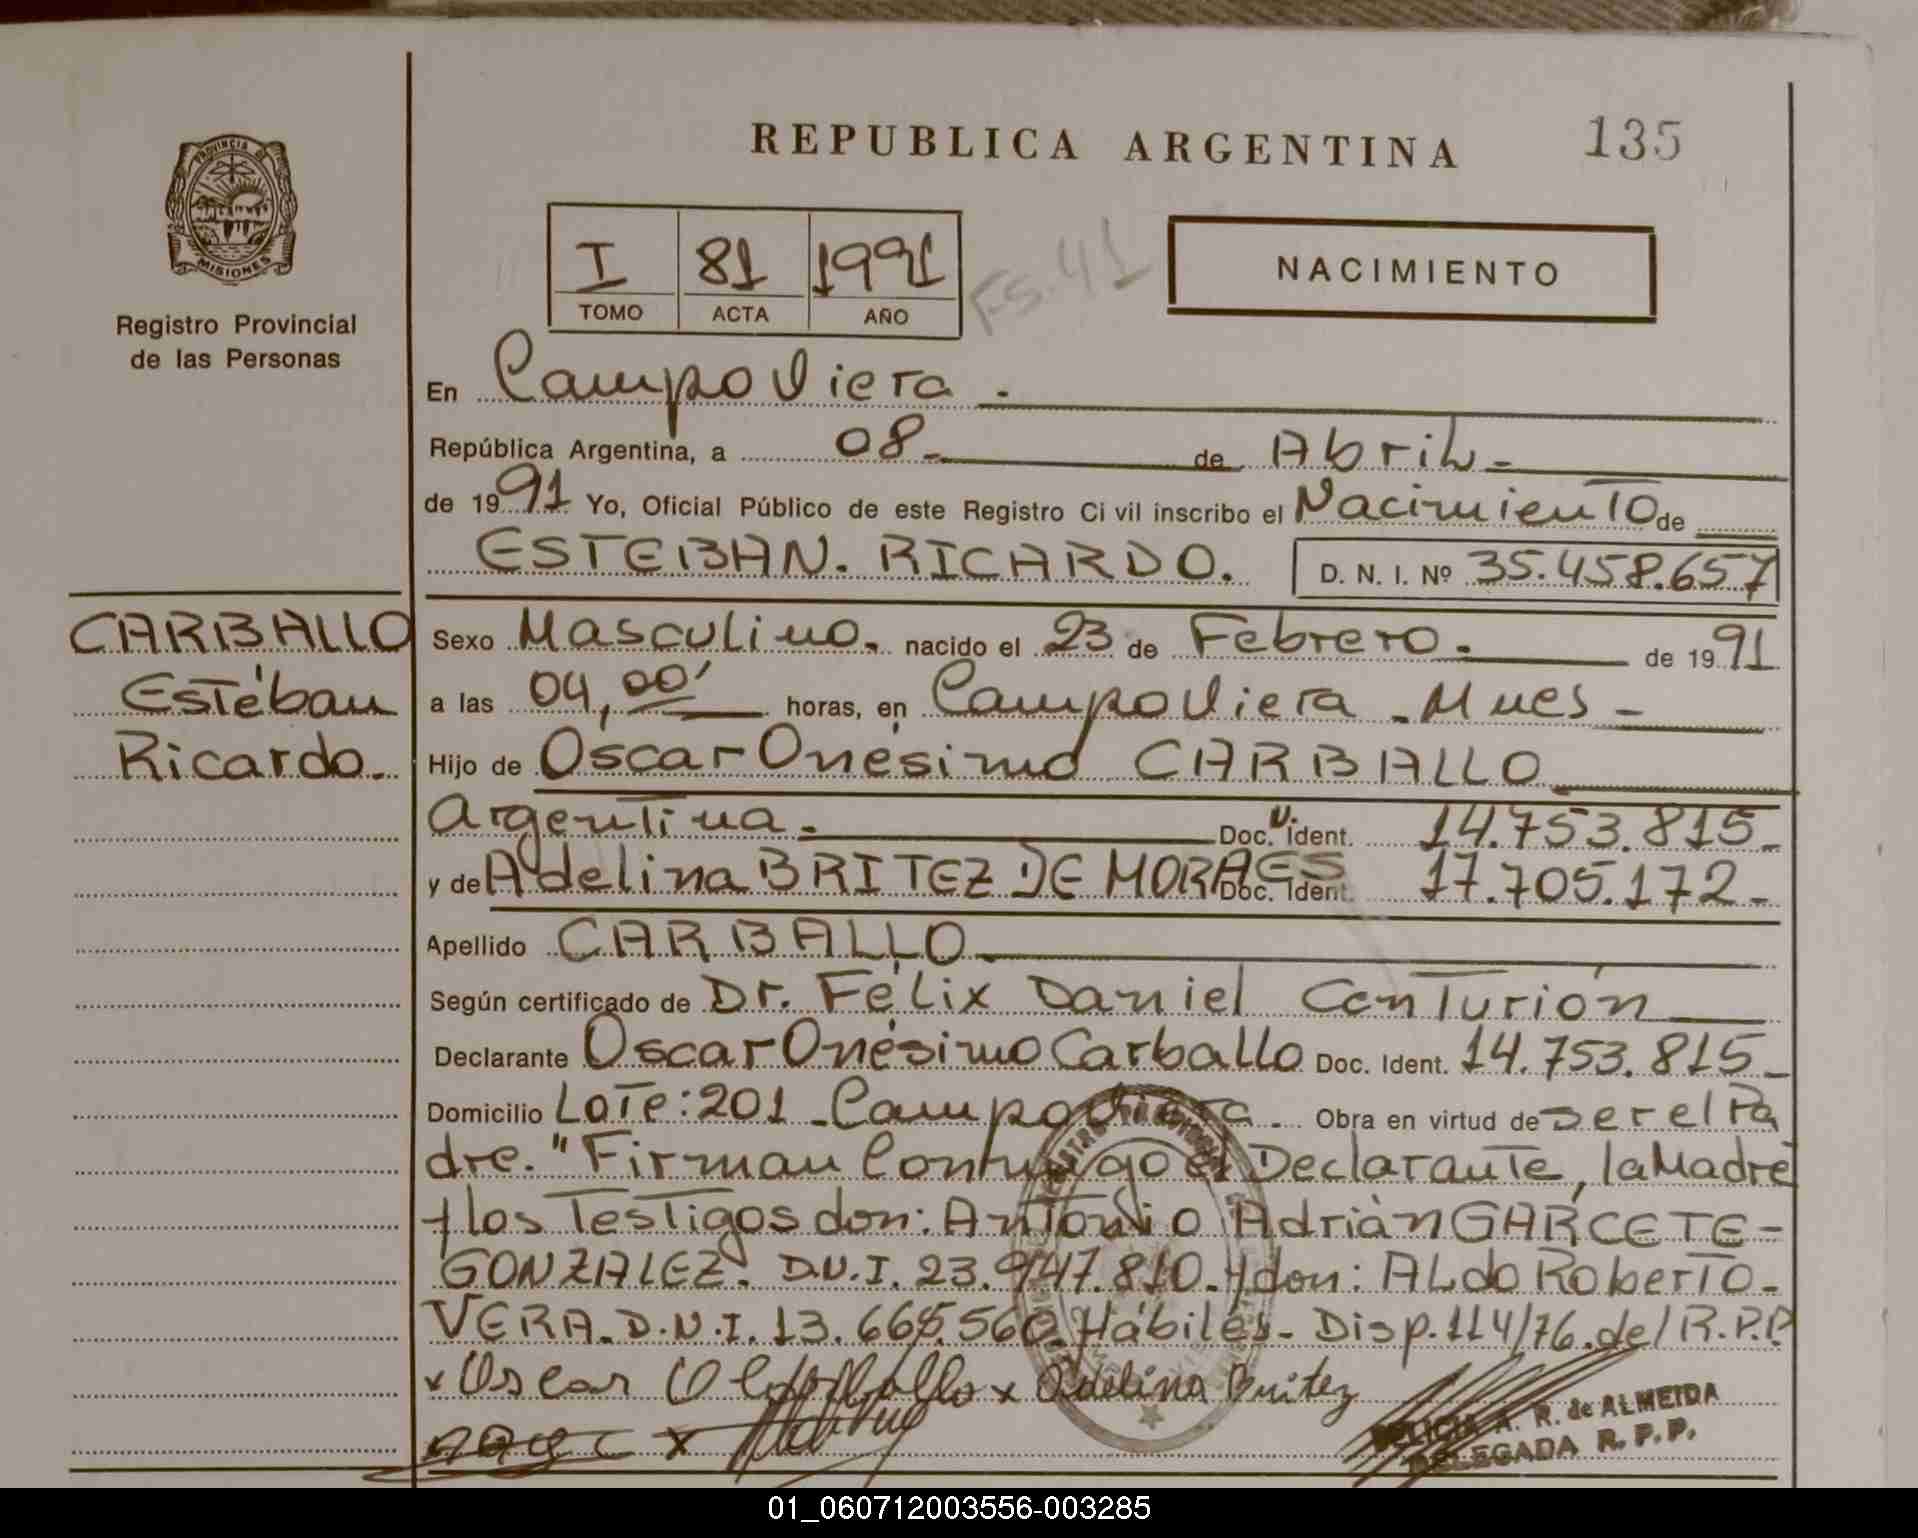 REPUBLICA ARGENTINA 135
PROVINCIA DE
MISIONES
Registro Provincial
de las Personas
I 81 1991
TOMO ACTA AÑO
Fs. 41
NACIMIENTO
En Campo Viera.
República Argentina, a 08_ de Abril_
de 1991 Yo, Oficial Público de este Registro Civil inscribo el Nacimiento de
ESTEBAN. RICARDO. D. N. I. Nº 35.458.657
CARBALLO
Estéban
Ricardo.
Sexo Masculino. nacido el 23 de Febrero. de 1991
a las 04,00' horas, en Campo Viera _ Mnes _
Hijo de Oscar Onésimo CARBALLO
Argentina. Doc. Ident. 14.753.815_
y de Adelina BRITEZ DE MORAES Doc. Ident. 17.705.172_
Apellido CARBALLO
Según certificado de Dr. Félix Daniel Centurión
Declarante Oscar Onésimo Carballo Doc. Ident. 14.753.815_
Domicilio Lote: 201 _ Campo Viera Obra en virtud de ser el Pa
dre. "Firman Conmigo el Declarante, la Madre
y los Testigos don: Antonio Adrián GARCETE-
GONZALEZ. D.N.I. 23.947.810. y don: Aldo Roberto-
VERA. D.N.I. 13.665.560. Hábiles. Disp. 114/76. del R.P.P.
x Oscar O Carballo x Adelina Britez
x
DELICIA A. R. de ALMEIDA
DELEGADA R. P. P.
01_060712003556-003285